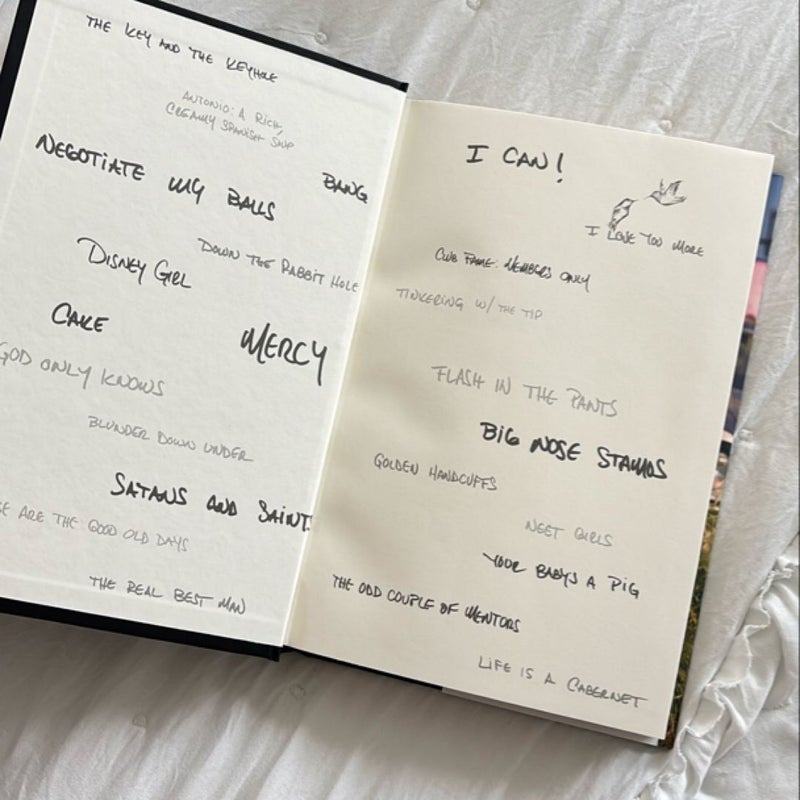 THE KEY AND THE KEYHOLE
ANTONIO: A RICH,
CREAMY SPANISH SOUP
NEGOTIATE MY BALLS
BANG
DOWN THE RABBIT HOLE
DISNEY GIRL
CAKE
MERCY
GOD ONLY KNOWS
BLUNDER DOWN UNDER
SATANS AND SAINTS
ARE THE GOOD OLD DAYS
THE REAL BEST MAN
I CAN!
I LOVE YOU MORE
CLUB FAME: MEMBERS ONLY
TINKERING W/ THE TIP
FLASH IN THE PANTS
BIG NOSE STAMOS
GOLDEN HANDCUFFS
NEET GIRLS
YOUR BABYS A PIG
THE ODD COUPLE OF MENTORS
LIFE IS A CABERNET